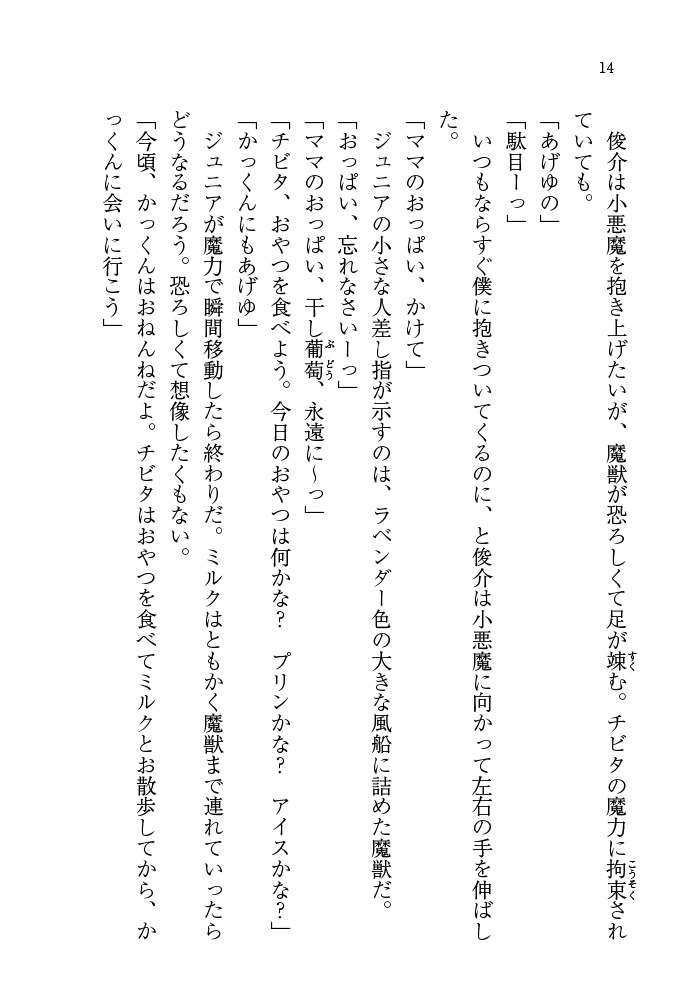 14
　俊介は小悪魔を抱き上げたいが、魔獣が恐ろしくて足が竦む。チビタの魔力に拘束され
ていても。
「あげゆの」
「駄目ーっ」
　いつもならすぐ僕に抱きついてくるのに、と俊介は小悪魔に向かって左右の手を伸ばし
た。
「ママのおっぱい、かけて」
　ジュニアの小さな人差し指が示すのは、ラベンダー色の大きな風船に詰めた魔獣だ。
「おっぱい、忘れなさいーっ」
「ママのおっぱい、干し葡萄、永遠に～っ」
「チビタ、おやつを食べよう。今日のおやつは何かな？　プリンかな？　アイスかな？」
「かっくんにもあげゆ」
　ジュニアが魔力で瞬間移動したら終わりだ。ミルクはともかく魔獣まで連れていったら
どうなるだろう。恐ろしくて想像したくもない。
「今頃、かっくんはおねんねだよ。チビタはおやつを食べてミルクとお散歩してから、か
っくんに会いに行こう」
すく
こうそく
ぶどう